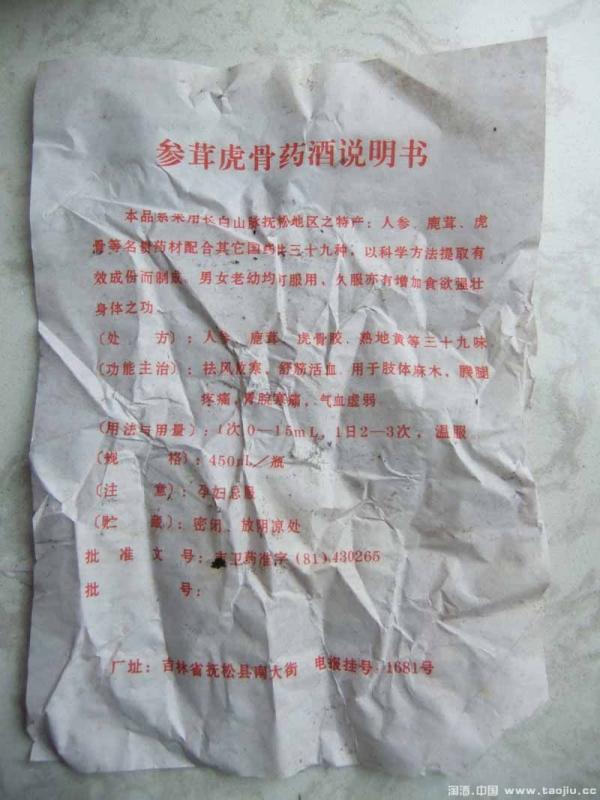 参茸虎骨药酒说明书
本品系采用长白山脉抚松地区之特产：人参、鹿茸、虎
骨等名贵药材配合其它国药共三十九种，以科学方法提取有
效成份而制成。男女老幼均可服用，久服亦有增加食欲强壮
身体之功。
〔处　方〕：人参、鹿茸、虎骨胶、熟地黄等三十九味。
〔功能主治〕：祛风散寒，舒筋活血。用于肢体麻木，腰腿
疼痛，胃脘寒痛，气血虚弱
〔用法与用量〕：1次 0—15mL，1日2—3次，温服
〔规　格〕：450mL／瓶
〔注　意〕：孕妇忌服
〔贮　藏〕：密闭，放阴凉处
批准文号：吉卫药准字(81)430265
批　号：
厂址：吉林省抚松县南大街　电报挂号：1681号
淘酒.中国 www.taojiu.cc